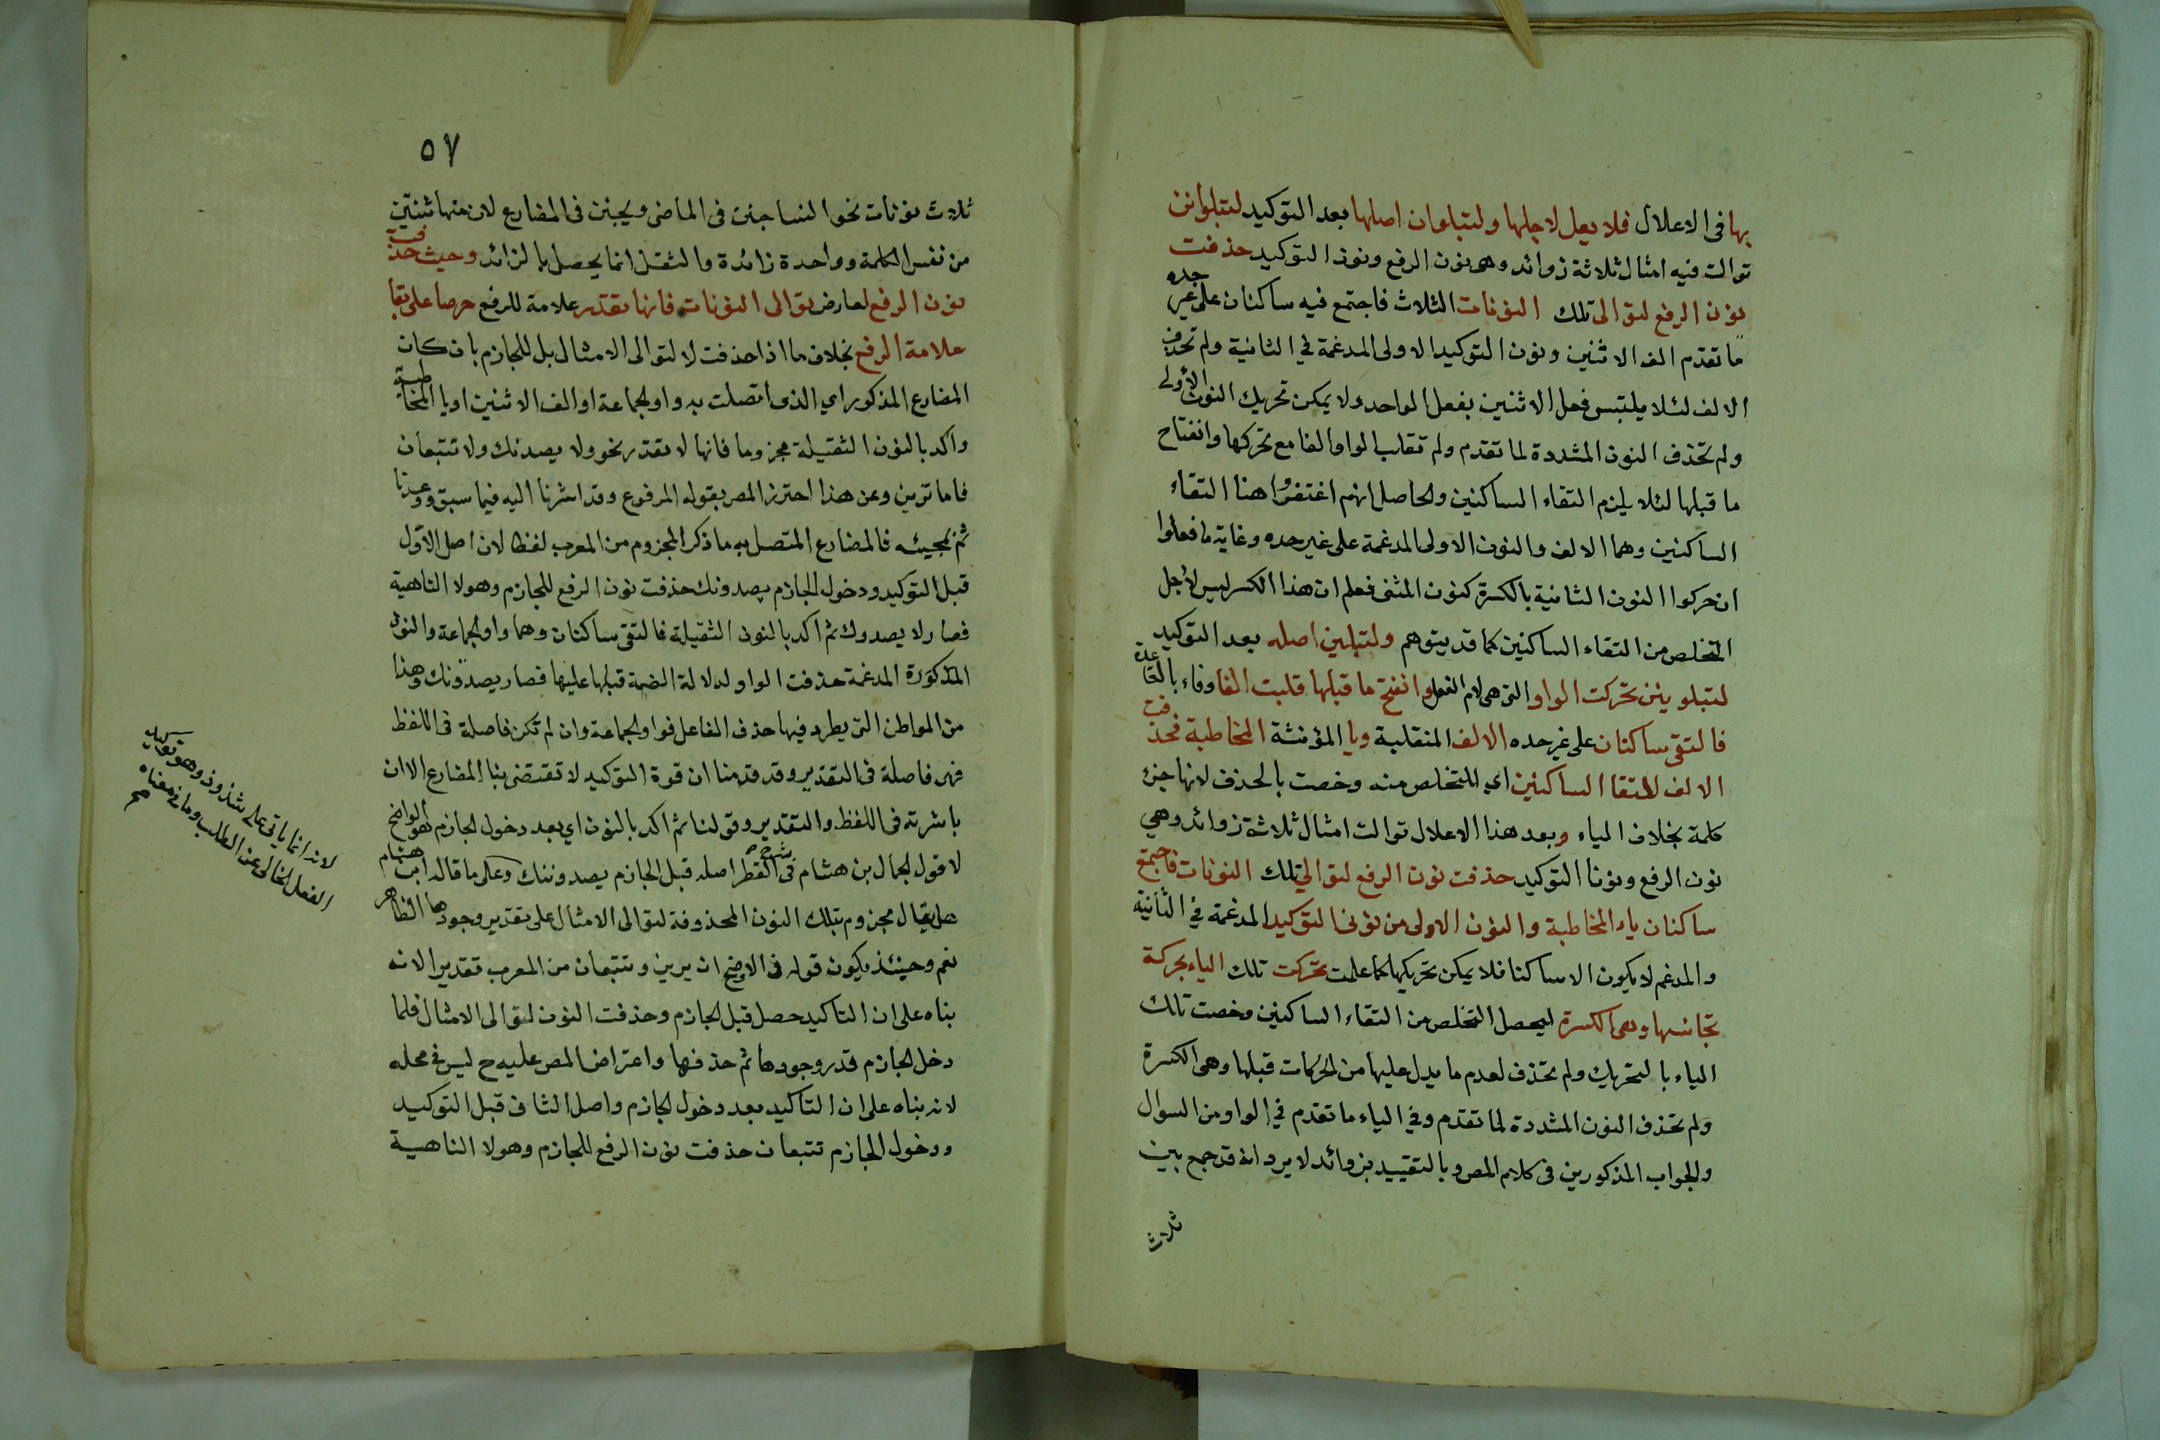 بها فى الاعلال فلا يعل لاجلها ولتبلوان اصلها بعد التوكيد لتبلوانن
توالت فيه امثال ثلاثة زوائد وهى نون الرفع ونونا التوكيد حذفت
نون الرفع لتوالى تلك النونات الثلاث فاجتمع فيه ساكنان على غير حده
ما تقدم الف الاثنين ونون التوكيد الاولى المدغمة في الثانية ولم تحذف
الالف لئلا يلتبس فعل الاثنين بفعل الواحد ولا يمكن تحريك النون الأولى
ولم تحذف النون المشددة لما تقدم ولم تقلب الواو الفا مع تحركها وانفتاح
ما قبلها لئلا يلزم التقاء الساكنين والحاصل انهم اغتفروا هنا التقاء
الساكنين وهما الالف والنون الاولى المدغمة على غير حده وغاية ما فعلوا
ان حركوا النون الثانية بالكسرة كنون المثنى فعلم ان هذا الكسر ليس لأجل
التخلص من التقاء الساكنين كما قد يتوهم ولتبلين اصله بعد التوكيد
لتبلوينن تحركت الواو التى هى لام الفعل وانفتح ما قبلها قلبت الفا وفاء بالقاعدة
فالتقى ساكنان على غير حده الالف المنقلبة ويا المؤنثة المخاطبة فحذفت
الالف لالتقا الساكنين اي للتخلص منه وخصت بالحذف لانها جزء
كلمة بخلاف الياء وبعد هذا الاعلال توالت امثال ثلاثة زوائد وهي
نون الرفع ونونا التوكيد حذفت نون الرفع لتوالي تلك النونات فاجتمع
ساكنان ياء المخاطبة والنون الاولى من نونى التوكيد المدغمة في الثانية
والمدغم لا يكون الا ساكنا فلا يمكن تحريكها كما علمت تحركت تلك الياء بحركة
تجانسها وهى الكسرة ليحصل التخلص من التقاء الساكنين وخصت تلك
الياء بالتحريك ولم تحذف لعدم ما يدل عليها من الحركات قبلها وهى الكسرة
ولم تحذف النون المشددة لما تقدم وفي الياء ما تقدم في الواو من السوال
والجواب المذكورين فى كلام المصر وبالتقييد بزوائد لا يرد انه قد جمع بين
ثلاث
٥٧
ثلاث نونات نحو النسا جنن فى الماضى ويجنن فى المضارع لان منها ثنتين
من نفس الكلمة وواحدة زائدة والثقل انما يحصل بالزائد وحيث حذفت
نون الرفع لعارض توالى النونات فانها تقدر علامة للرفع حرصا على بقا
علامة الرفع بخلاف ما اذا حذفت لا لتوالى الامثال بل للجازم بان كان
المضارع المذكور اي الذى اتصلت به واو الجماعة او الف الاثنين او يا المخاطبة
واكد بالنون الثقيلة مجزوما فانها لا تقدر نحو ولا يصدنك ولا تتبعان
فاما ترين وعن هذا احترز المصر بقوله المرفوع وقد اشرنا اليه فيما سبق ووعدنا
ثم بمجيئه فالمضارع المتصل به ما ذكر المجزوم من المعرب لفظا لان اصل الأول
قبل التوكيد ودخول الجازم يصدونك حذفت نون الرفع للجازم وهو لا الناهية
فصار لا يصدوك ثم اكد بالنون الثقيلة فالتقى ساكنان وهما واو الجماعة والنون
المذكورة المدغمة حذفت الواو لدلالة الضمة قبلها عليها فصار يصدونك وهذا
من المواطن التى يطرد فيها حذف الفاعل فواو الجماعة وان لم تكن فاصلة فى اللفظ
فهى فاصلة فى التقدير وقد قدمنا ان قوة التوكيد لا تقتضى بنا المضارع الا ان
باشرته فى اللفظ والتقدير وقولنا ثم اكد بالنون اي بعد دخول الجازم هو الواضح
لا قول الجمال بن هشام فى شرح القطر اصله قبل الجازم يصدوننك وعلى ما قاله ابن هشام
هل يقال مجزوم بتلك النون المحذوفة لتوالى الامثال على تقدير وجودها الظاهر
نعم وحينئذ يكون قوله فى الاوضح ان يرين وتتبعان من المعرب تقديرا لانه
بناه على ان التاكيد حصل قبل الجازم وحذفت النون لتوالى الامثال فلما
دخل الجازم قدر وجودها ثم حذفها واعتراض المصر عليه ح ليس فى محله
لانه بناه على ان التاكيد بعد دخول الجازم واصل الثانى قبل التوكيد
ودخول الجازم تتبعان حذفت نون الرفع للجازم وهو لا الناهية
لانه انما ياتى على شذوذ وهو توكيد
الفعل الخالى عن الطلب وما فى معناه